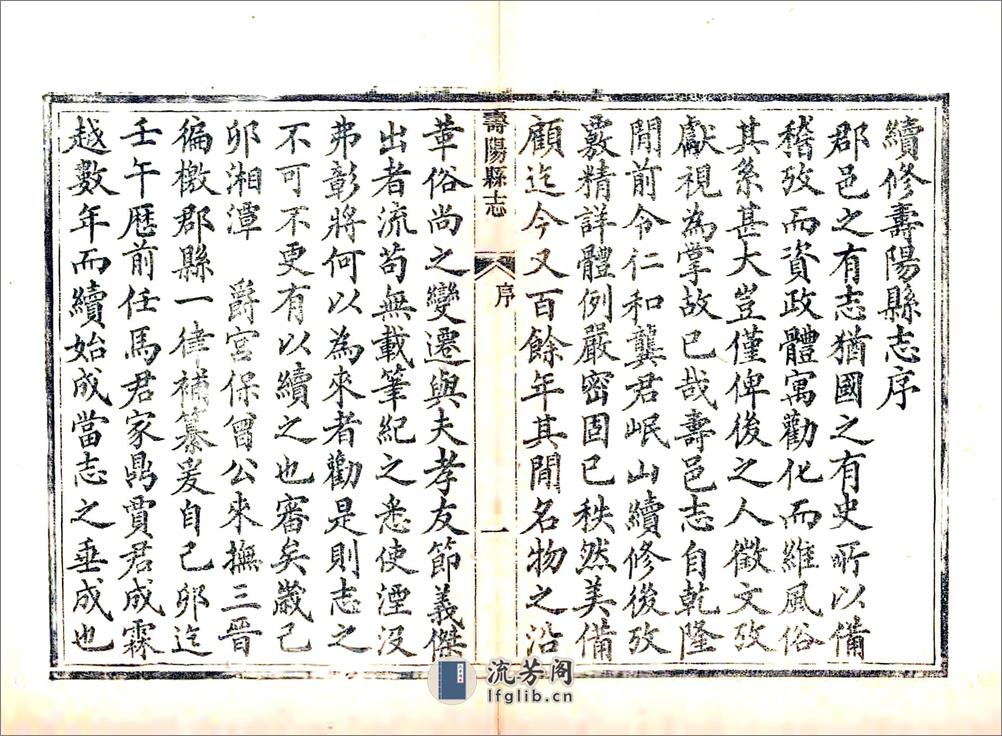 續修壽陽縣志序
郡邑之有志猶國之有史所以備
稽攷而資政體寓勸化而維風俗
其系甚大豈僅俾後之人徵文攷
獻視為掌故已哉壽邑志自乾隆
間前令仁和龔君岷山續修後攷
覈精詳體例嚴密固已秩然美備
顧迄今又百餘年其間名物之沿
壽陽縣志 序 一
革俗尚之變遷與夫孝友節義傑
出者流苟無載筆紀之悉使湮沒
弗彰將何以為來者勸是則志之
不可不更有以續之也審矣歲己
卯湘潭 爵宮保曾公來撫三晉
徧檄郡縣一律補纂爰自己卯迄
壬午歷前任馬君家鼎賈君成霖
越數年而續始成當志之垂成也
流芳阁
lfglib.cn